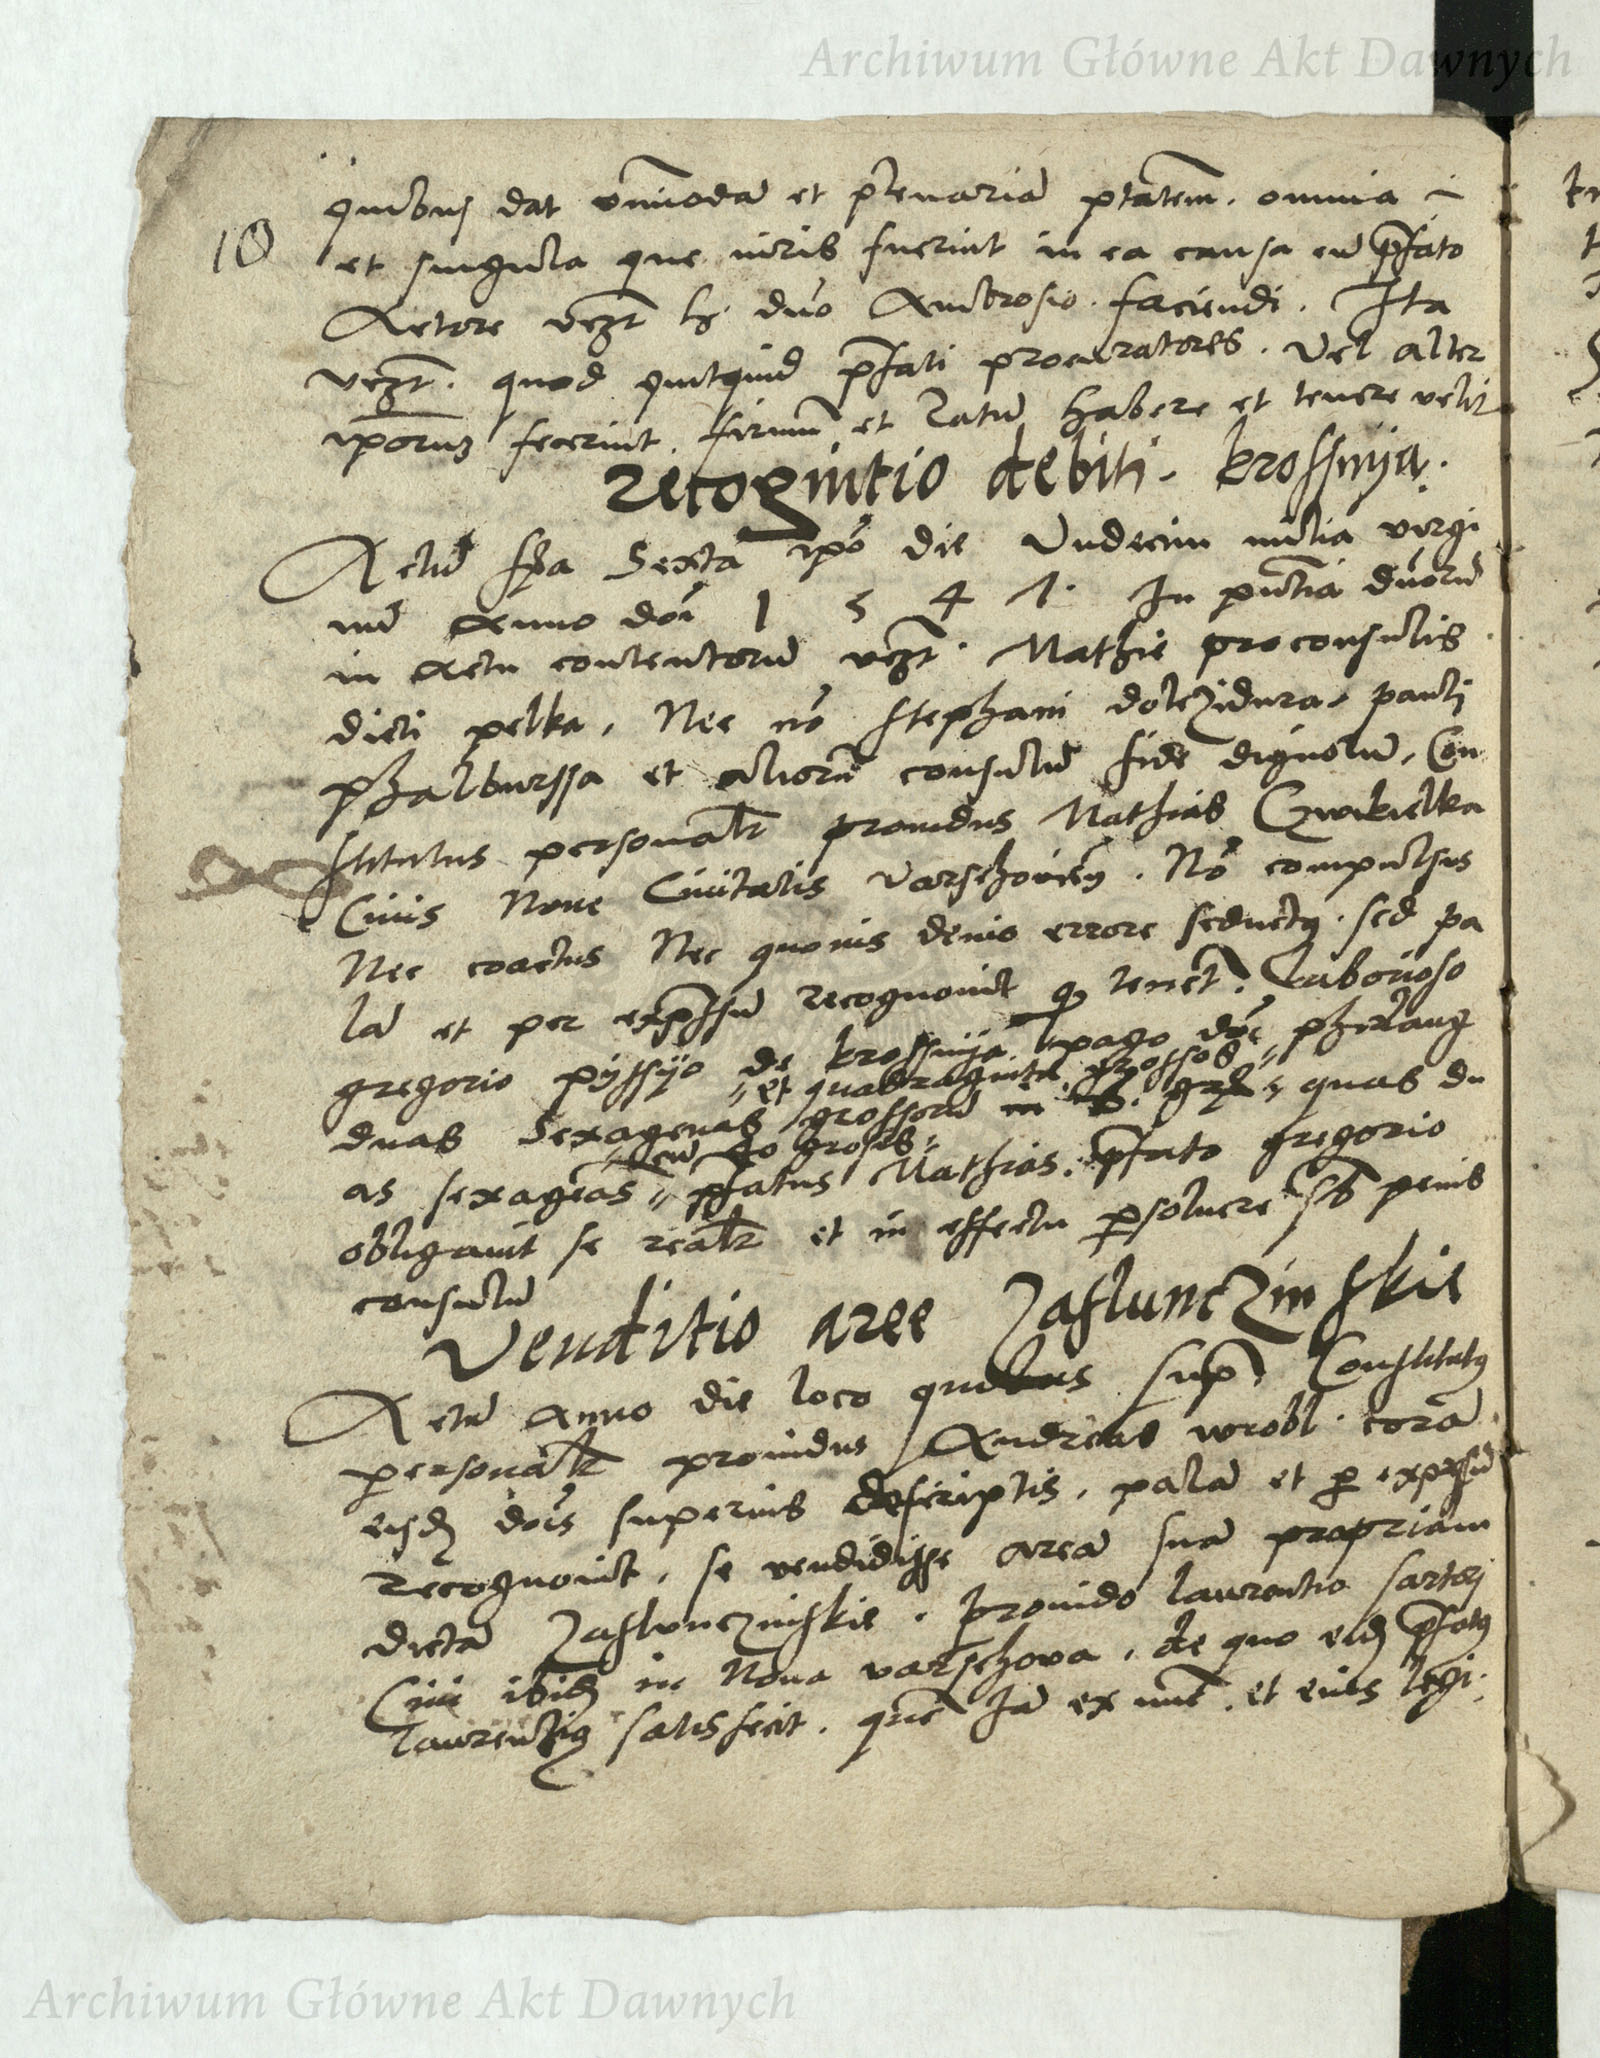 Archiwum Główne Akt Dawnych
10
quibus dat omnimodā et plenariā ptātem. omnia
et singula que iuris fuerint in ea causa cū pfato
Actore vczt dno Ambrosio. faciendi. Ita
vczt. quod quitquid pfati procuratores. vel alter
ipsorum fecerint. firmū et Ratū habere et tenere velit
Recognicio debiti. krossnija.
Actū fīa Sexta ipō die Undecim milia virgi
nū Anno dōi 1 5 4 1. In pntia dnorū
in Actu contentorū vczt. Mathie proconsulis
dicti pelka, Nec nō stephani dolezidura, pauli
phalburssa et aliorū consulū fide dignorū, Con
stitutus personalr prouidus Mathias Czwikielka
Ciuis Noue Ciuitatis varschouien. Nō compulsus
Nec coactus Nec quouis deuio errore seductus. sed pa
lā et per expssū recognouit q tenet. Laborioso
gregorio pyssyo de krossnija pago dōi
„ et quadraginta grossos „
duas Sexagenas grossorū in quas du
„ cū 40 grosis „
as sexagēas „ pfatus Mathias. pfato gregorio
obligauit se realr et in effectu psoluere sb penis
consulū
Venditio aree Zaslunczinskie
Actū Anno die loco quibus sup. Constitutus
personalr prouidus Andreas wrobl. corā
eisdē dōis superius descriptis, palā et p expssū
Recognouit, se vendidisse areā suā propriam
dictā Zaslunczinskie. prouido laurentio sartori
Ciui ibidē in Noua varschova, de quo eidē pfatus
laurentius satisfecit. quē Iā ex nūc. et eius legi.
Archiwum Główne Akt Dawnych